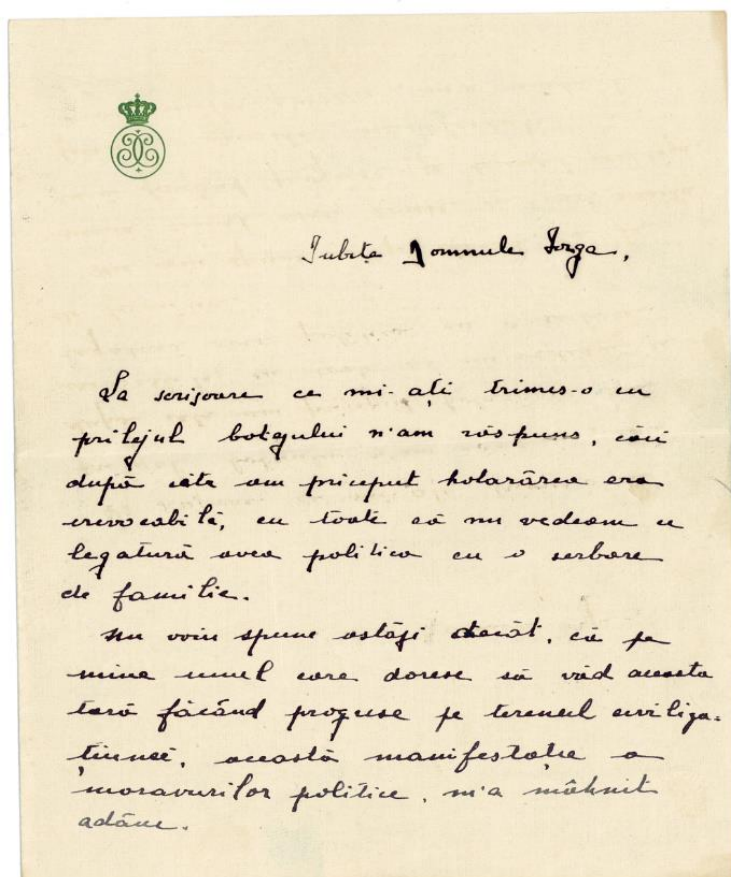 Iubite Domnule Iorga,
La scrisoare ce mi-ați trimes-o cu
prilejul botezului n'am răspuns, căci
după câte am priceput hotărârea era
irevocabilă, cu toate că nu vedeam ce
legatură avea politica cu o serbare
de familie.
Nu voiu spune astăzi decât, că pe
mine unul care doresc să văd aceasta
țară făcând progrese pe terenul civiliza-
țiunei, această manifestație a
moravurilor politice, m'a mâhnit
adânc.